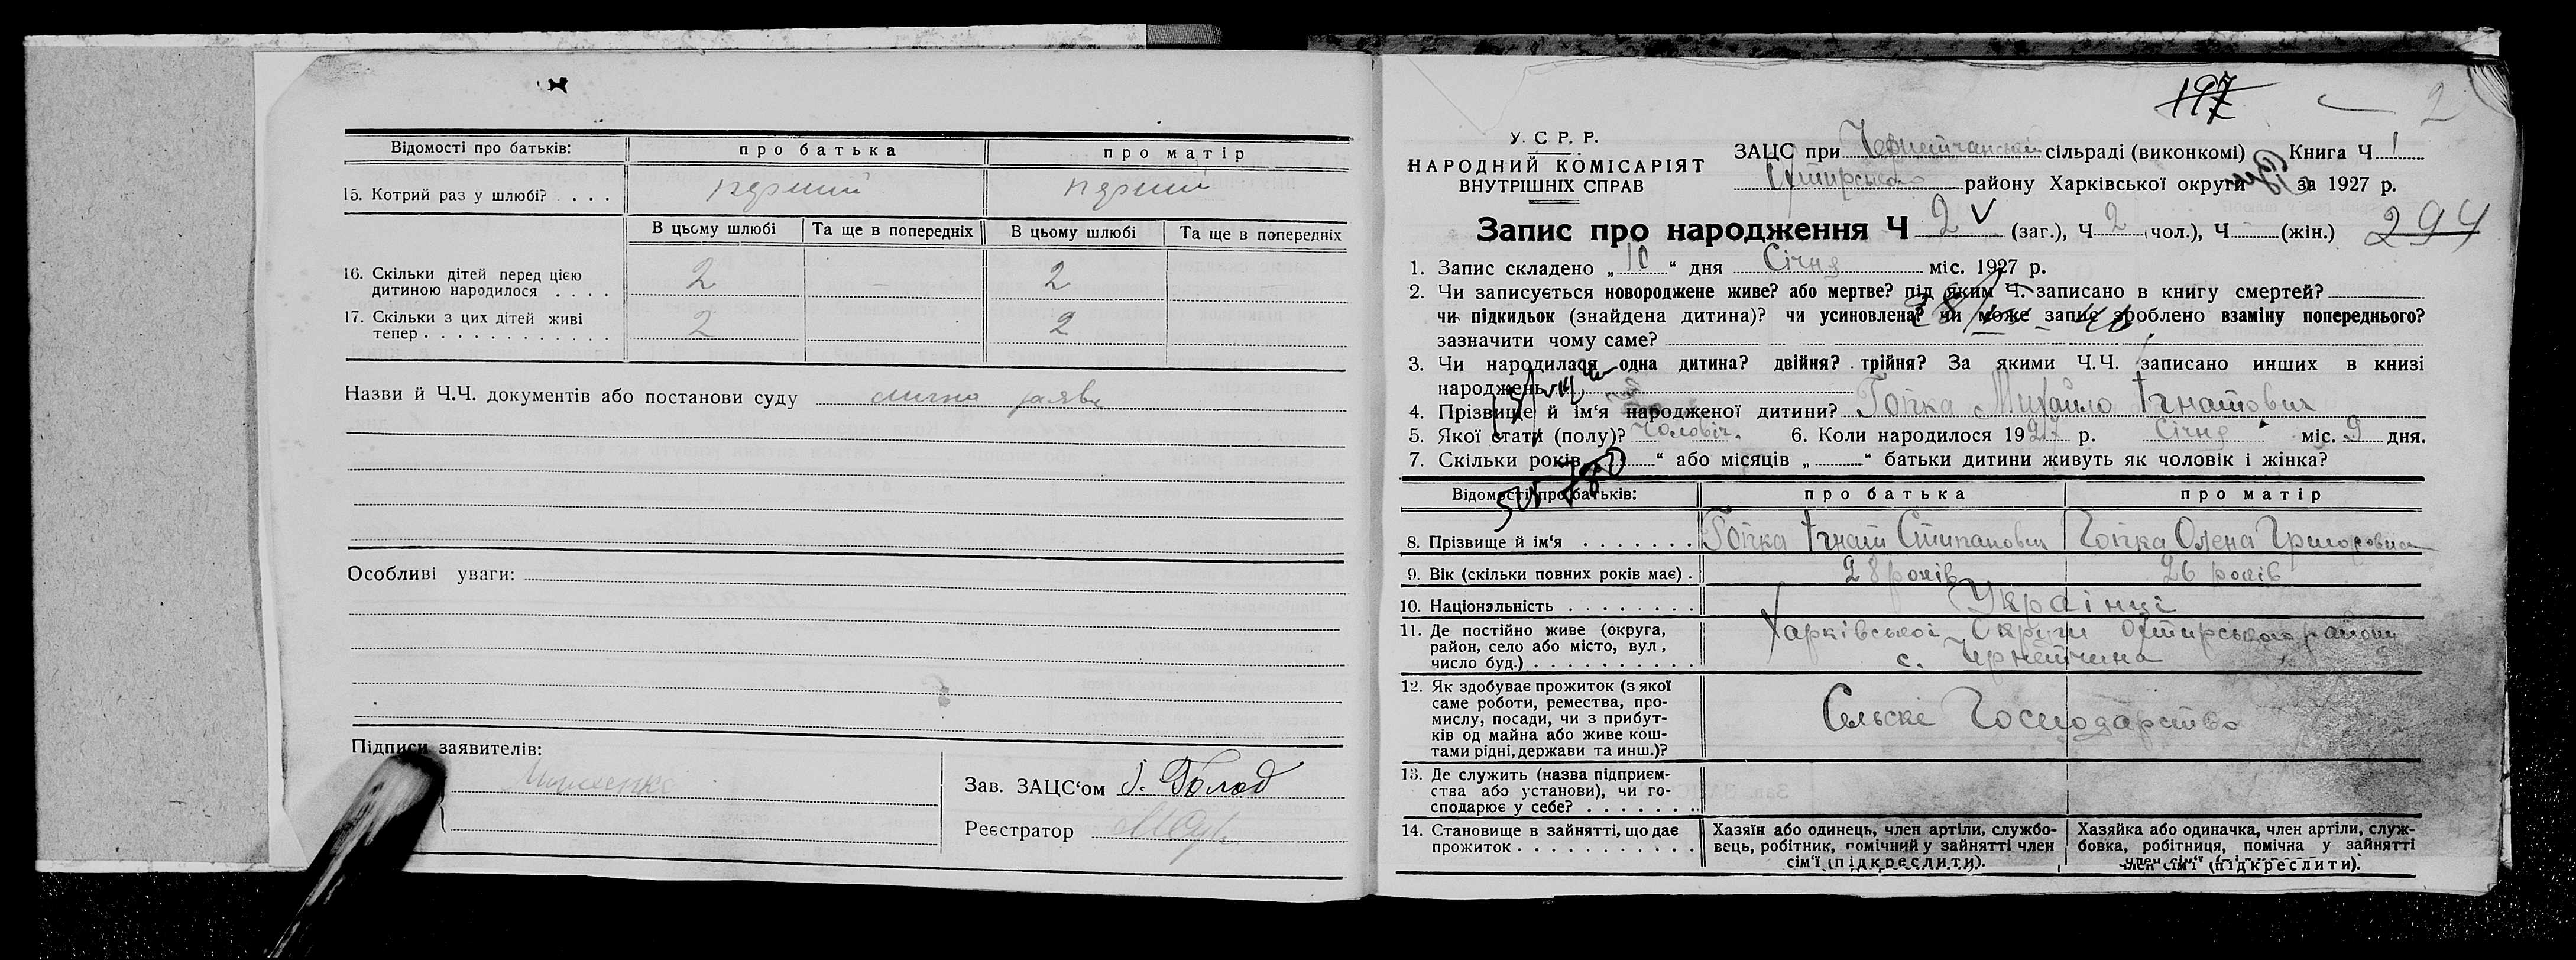 Відомості про батьків: про батька про матір
15. Котрий раз у шлюбі? . . . перший перший
В цьому шлюбі Та ще в попередніх В цьому шлюбі Та ще в попередніх
16. Скільки дітей перед цією
дитиною народилося . . . . 2 — 2 —
17. Скільки з цих дітей живі
тепер . . . . . . . . . . . . 2 2
Назви й Ч.Ч. документів або постанови суду лична заява
Особливі уваги:
Підписи заявителів:
Зав. ЗАЦС‘ом І. Голод
Реєстратор
197 2
У. С. Р. Р.
НАРОДНИЙ КОМІСАРІЯТ
ВНУТРІШНІХ СПРАВ
ЗАЦС при Чернетчанській сільраді (виконкомі) Книга Ч 1
Охтирського району Харківської округи за 1927 р.
Запис про народження Ч 2 (заг.), Ч 2 (чол.), Ч — (жін.) 294
1. Запис складено „ 10 “ дня Січня міс. 1927 р.
2. Чи записується новороджене живе? або мертве? під яким Ч. записано в книгу смертей?
чи підкидьок (знайдена дитина)? чи усиновлена? чи може запис зроблено взаміну попереднього?
зазначити чому саме?
3. Чи народилася одна дитина? двійня? трійня? За якими Ч.Ч. записано инших в книзі
народжень
4. Прізвище й ім‘я народженої дитини? Гоїчка Михайло Ігнатович
5. Якої стати (полу)? Чоловіч. 6. Коли народилося 1927 р. Січня міс. 9 дня.
7. Скільки років „ “ або місяців „ “ батьки дитини живуть як чоловік і жінка?
Відомості про батьків: про батька про матір
8. Прізвище й ім‘я . . . . . . . Гоїчка Ігнат Степанович Гоїчка Олена Григоровна
9. Вік (скільки повних років має) . 28 років 26 років
10. Національність . . . . . . . . Українці
11. Де постійно живе (округа,
район, село або місто, вул,
число буд.) . . . . . . . . . . Харківської Округи Охтирського району
с. Чернетчина
12. Як здобуває прожиток (з якої
саме роботи, ремества, про-
мислу, посади, чи з прибут-
ків од майна або живе кош-
тами рідні, держави та инш.)? Сельске Господарство
13. Де служить (назва підприєм-
ства або установи), чи го-
сподарює у себе? . . . . . . .
14. Становище в зайнятті, що дає
прожиток . . . . . . . . . . .
Хазяїн або одинець, член артіли, службо-
вець, робітник, помічний у зайнятті член
сім‘ї (підкреслити).
Хазяйка або одиначка, член артіли, служ-
бовка, робітниця, помічна у зайнятті
член сім‘ї (підкреслити).